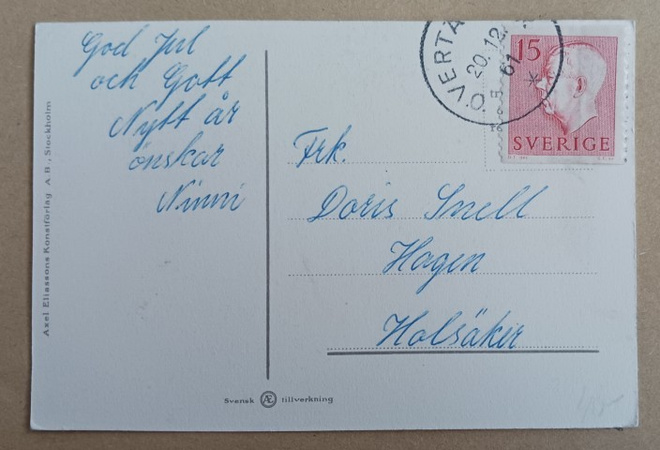 God Jul
och Gott
Nytt år
önskar
Ninni
Axel Eliassons Konstförlag A.B., Stockholm
Svensk Æ tillverkning
ÖVERTÅ
20.12.
61
15
SVERIGE
Frk.
Doris Snell
Hagen
Holsåker